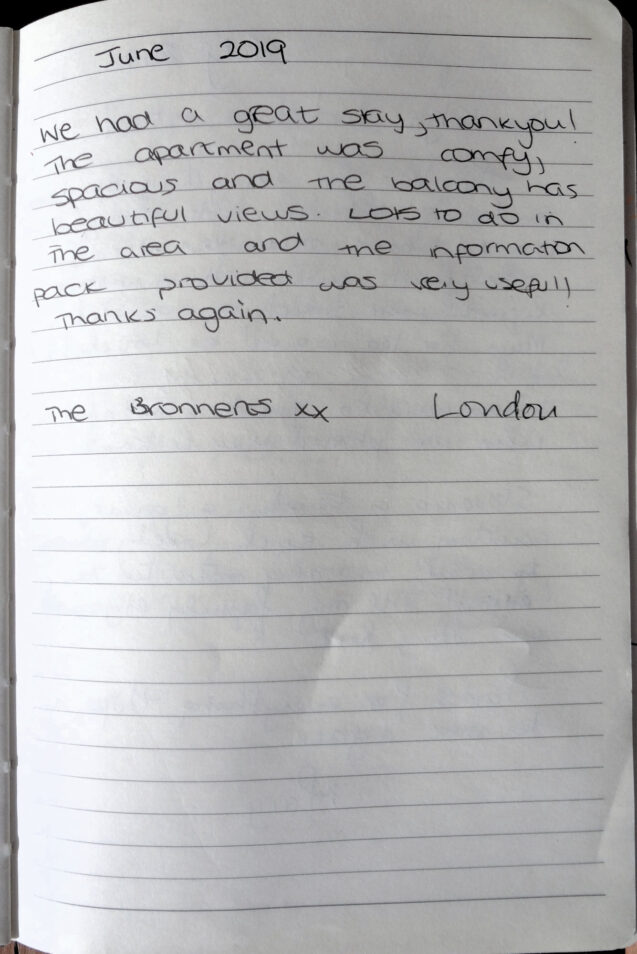 June 2019
We had a great stay, thankyou!
The apartment was comfy,
spacious and the balcony has
beautiful views. Lots to do in
the area and the information
pack provided was very useful!
Thanks again.
The Bronners xx London